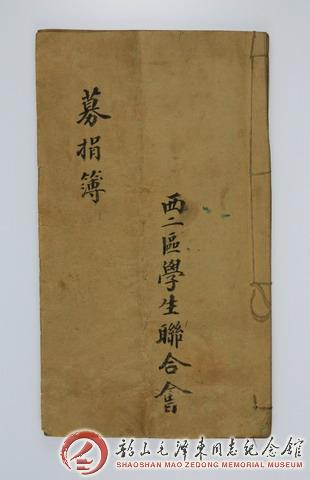 西二區學生聯合會
募捐簿
韶山毛澤東同志紀念館
SHAOSHAN MAO ZEDONG MEMORIAL MUSEUM